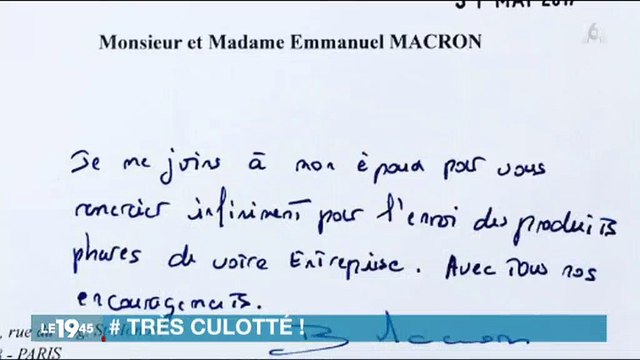 31 MAI 2017
M6
Monsieur et Madame Emmanuel MACRON
Je me joins à mon époux pour vous
remercier infiniment pour l'envoi des produits
phares de votre Entreprise. Avec tous nos
encouragements.
B Macron
LE 19 45 # TRÈS CULOTTÉ !
, rue du
- PARIS